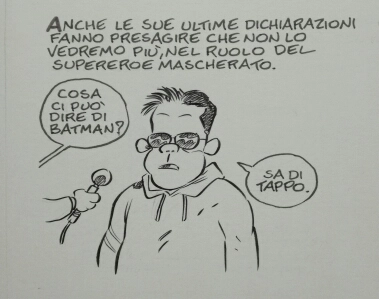 ANCHE LE SUE ULTIME DICHIARAZIONI
FANNO PRESAGIRE CHE NON LO
VEDREMO PIÙ, NEL RUOLO DEL
SUPEREROE MASCHERATO.
COSA
CI PUÒ
DIRE DI
BATMAN?
SA DI
TAPPO.